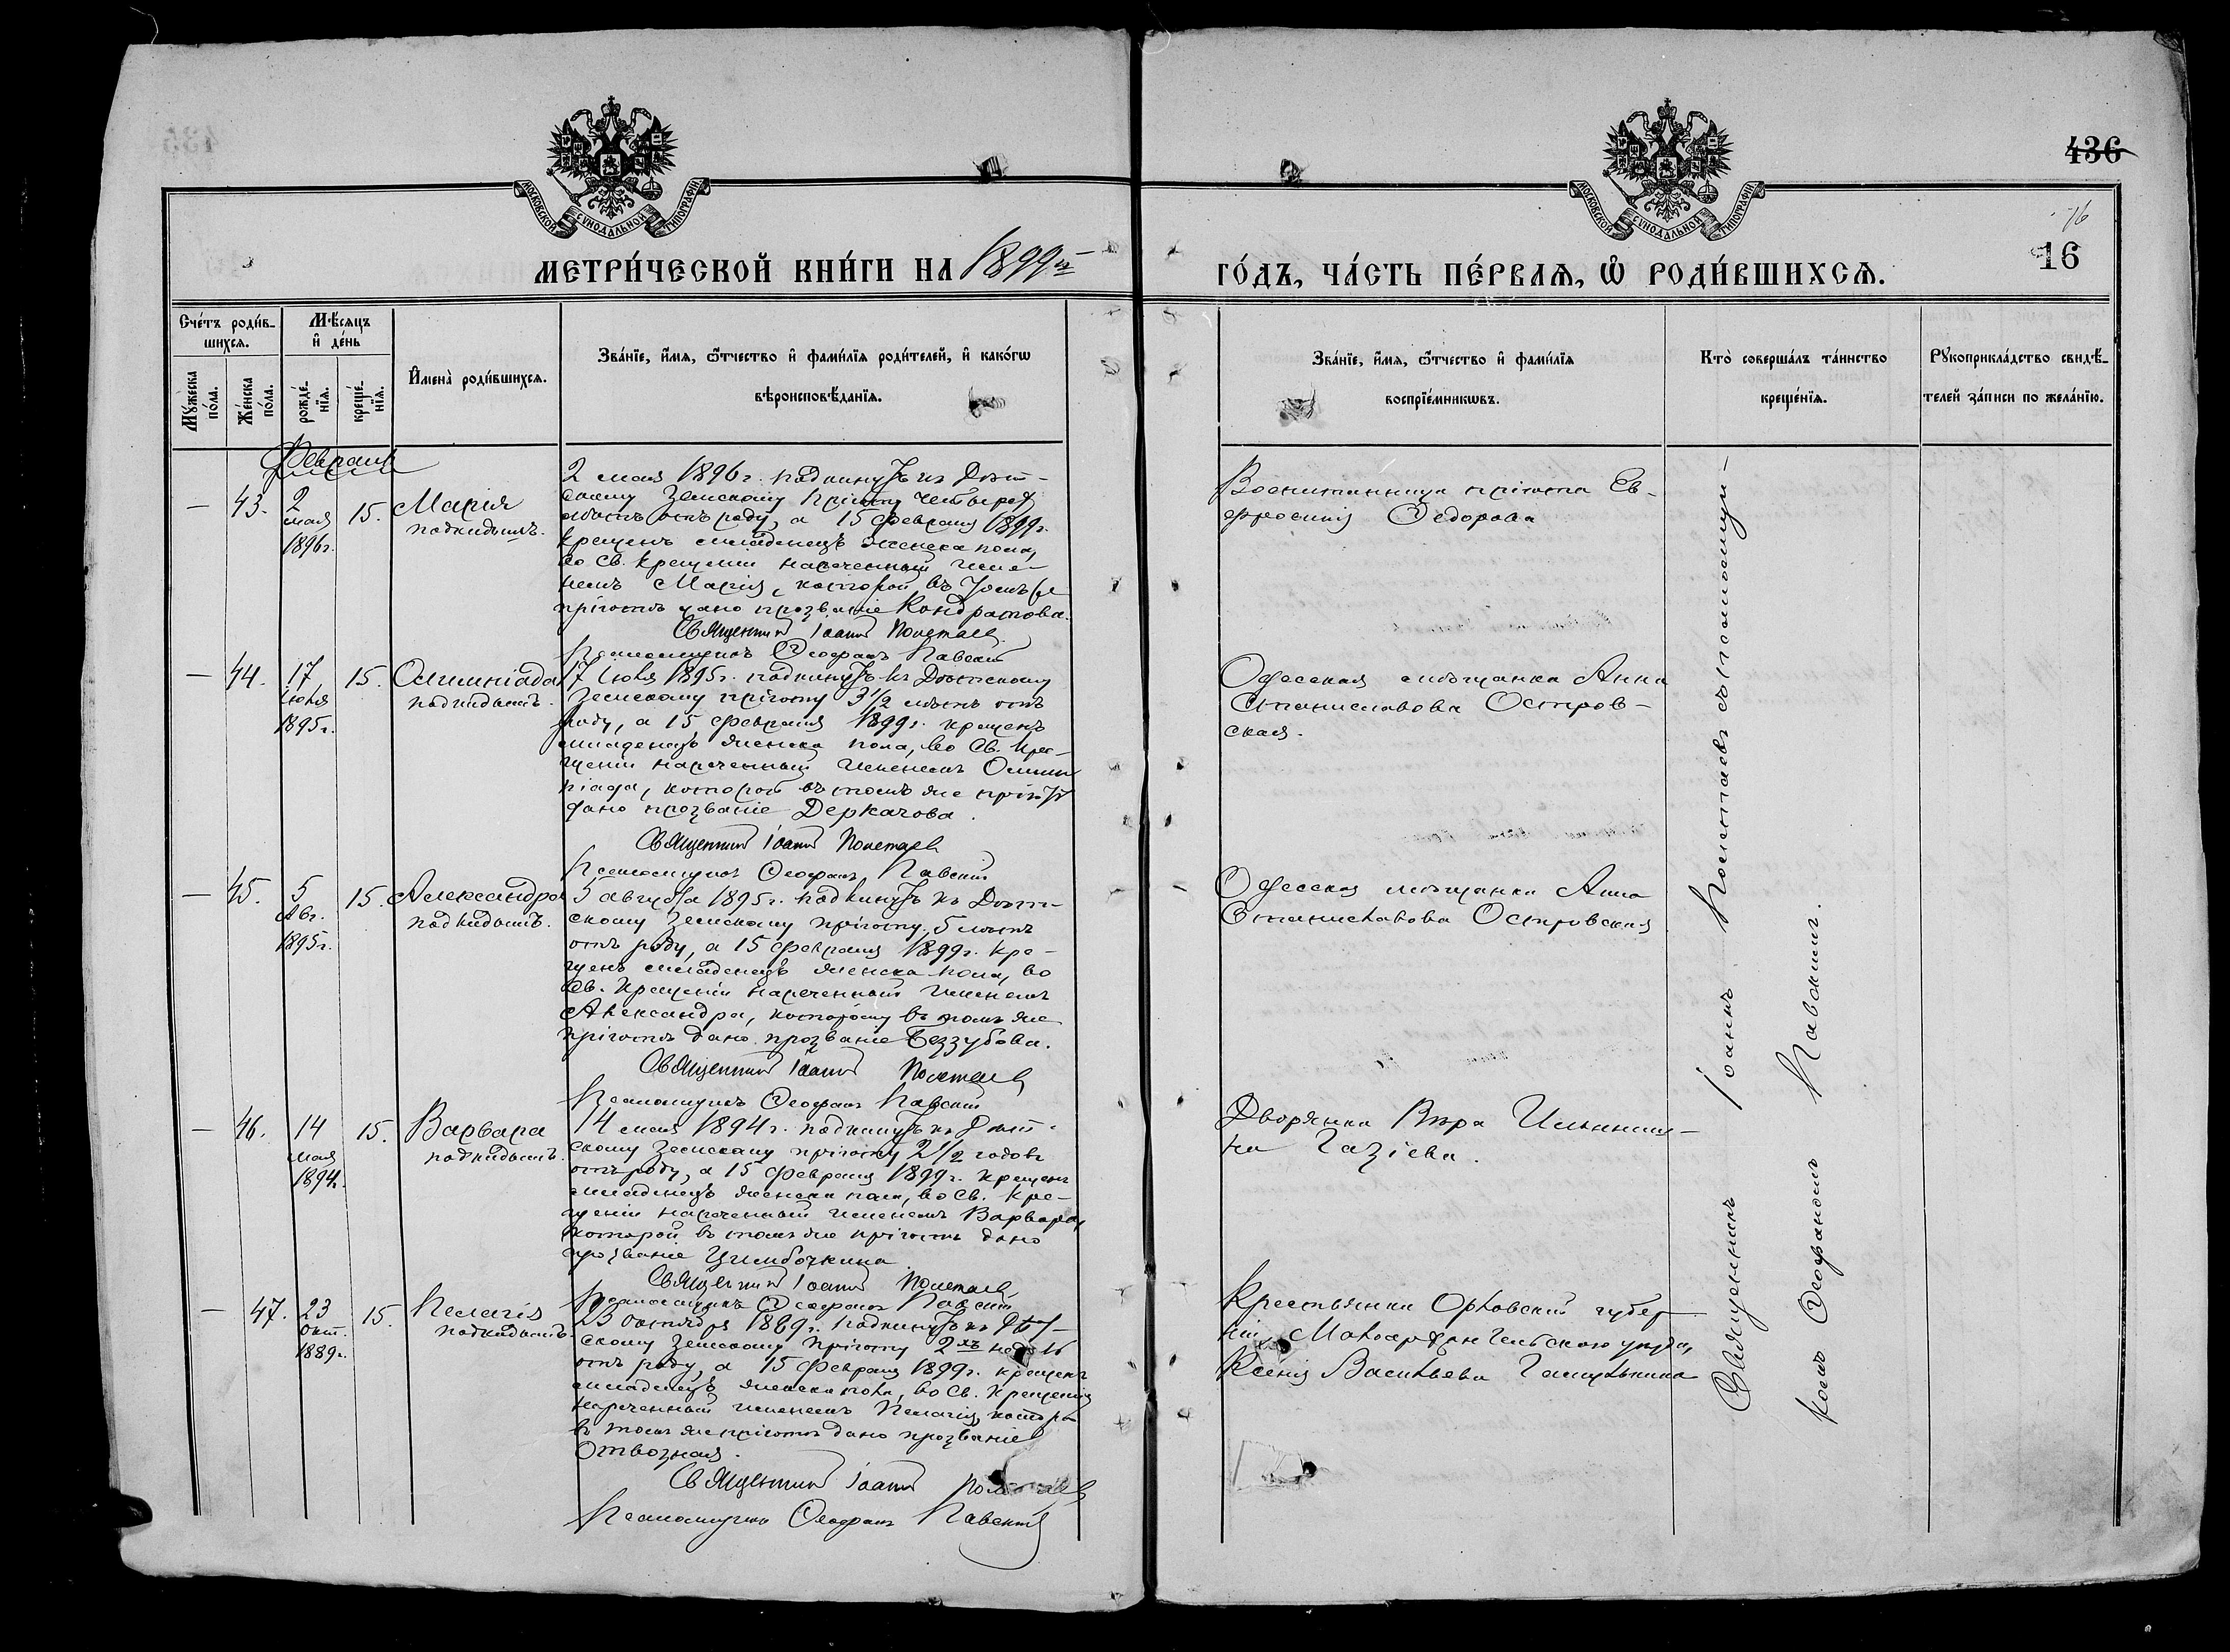 436
МОСКОВСКОЙ СѴНОДАЛЬНОЙ ТИПОГРАФІИ
МОСКОВСКОЙ СѴНОДАЛЬНОЙ ТИПОГРАФІИ
16
МЕТРИ́ЧЕСКОЙ КНИ́ГИ НА 1899й
ГО́ДЪ, ЧА́СТЬ ПЕ́РВАѦ, Ѡ҆ РОДИ́ВШИХСѦ.
16
Сче́тъ роди́в-
шихсѧ.
Мꙋ́жеска
по́ла.
Же́нска
по́ла.
Мѣ́сѧцъ
и҆ де́нь
рожде́-
нїѧ.
креще́-
нїѧ.
И҆мена̀ роди́вшихсѧ.
Зва́нїе, и҆́мѧ, ѻ҆́тчество и҆ фами́лїѧ роди́телей, и҆ како́гѡ
вѣроисповѣ́данїѧ.
Зва́нїе, и҆́мѧ, ѻ҆́тчество и҆ фами́лїѧ
воспрїе́мникѡвъ.
Кто̀ соверша́лъ та́инство
креще́нїѧ.
Рꙋкоприкла́дство свидѣ́-
телей за́писи по жела́нїю.
Февраль
— 43. 2 мая 1896г. 15. Марія подкидышъ.
2 мая 1896г. подкинутъ къ Дѣт-
скому Земскому пріюту четырехъ
лѣтъ отъ роду, а 15 февраля 1899г.
крещенъ младенецъ женска пола,
во Св. крещеніи нареченный име-
немъ Марія, которой въ томъ же
пріютѣ дано прозваніе Кондратова.
Священникъ Іоаннъ Полетаевъ
Псаломщикъ Ѳеофанъ Павскій
Воспитанница пріюта Ев-
фросинія Ѳедорова
— 44. 17 Іюля 1895г. 15. Олимпіада подкидышъ.
17 Іюля 1895г. подкинутъ къ Дѣтскому
Земскому пріюту 3½ лѣтъ отъ
роду, а 15 февраля 1899г. крещенъ
младенецъ женска пола, во Св. Кре-
щеніи нареченный именемъ Олим-
піада, которой въ томъ же пріютѣ
дано прозваніе Деркачова.
Священникъ Іоаннъ Полетаевъ
Псаломщикъ Ѳеофанъ Павскій
Одесская мѣщанка Анна
Станиславова Остров-
ская.
— 45. 5 Авг. 1895г. 15. Александра подкидышъ.
5 августа 1895г. подкинутъ къ Дѣт-
скому Земскому пріюту, 5 лѣтъ
отъ роду, а 15 февраля 1899г. кре-
щенъ младенецъ женска пола, во
Св. Крещеніи нареченный именемъ
Александра, которому въ томъ же
пріютѣ дано прозваніе Беззубова.
Священникъ Іоаннъ Полетаевъ
Псаломщикъ Ѳеофанъ Павскій
Одесская мѣщанка Анна
Станиславова Островская
— 46. 14 мая 1894г. 15. Варвара подкидышъ.
14 мая 1894г. подкинутъ къ Дѣт-
скому Земскому пріюту 2½ годовъ
отъ роду, а 15 февраля 1899г. крещенъ
младенецъ женска пола, во Св. Кре-
щеніи нареченный именемъ Варвара,
которой въ томъ же пріютѣ дано
прозваніе Цимбочкина
Священникъ Іоаннъ Полетаевъ
Псаломщикъ Ѳеофанъ Павскій
Дворянка Вѣра Ильинич-
на Газіева.
— 47. 23 окт. 1889г. 15. Пелагія подкидышъ.
23 октября 1889г. подкинутъ къ Дѣт-
скому Земскому пріюту 2хъ недѣль
отъ роду, а 15 февраля 1899г. крещенъ
младенецъ женска пола, во Св. Крещеніи
нареченный именемъ Пелагія, которой
въ томъ же пріютѣ дано прозваніе
Отвозная.
Священникъ Іоаннъ Полетаевъ
Псаломщикъ Ѳеофанъ Павскій
Крестьянка Орловской губер-
ніи, Малоархангельскаго уѣзда,
Ксенія Васильева
Священникъ Іоаннъ Полетаевъ съ псаломщи-
комъ Ѳеофаномъ Павскимъ.